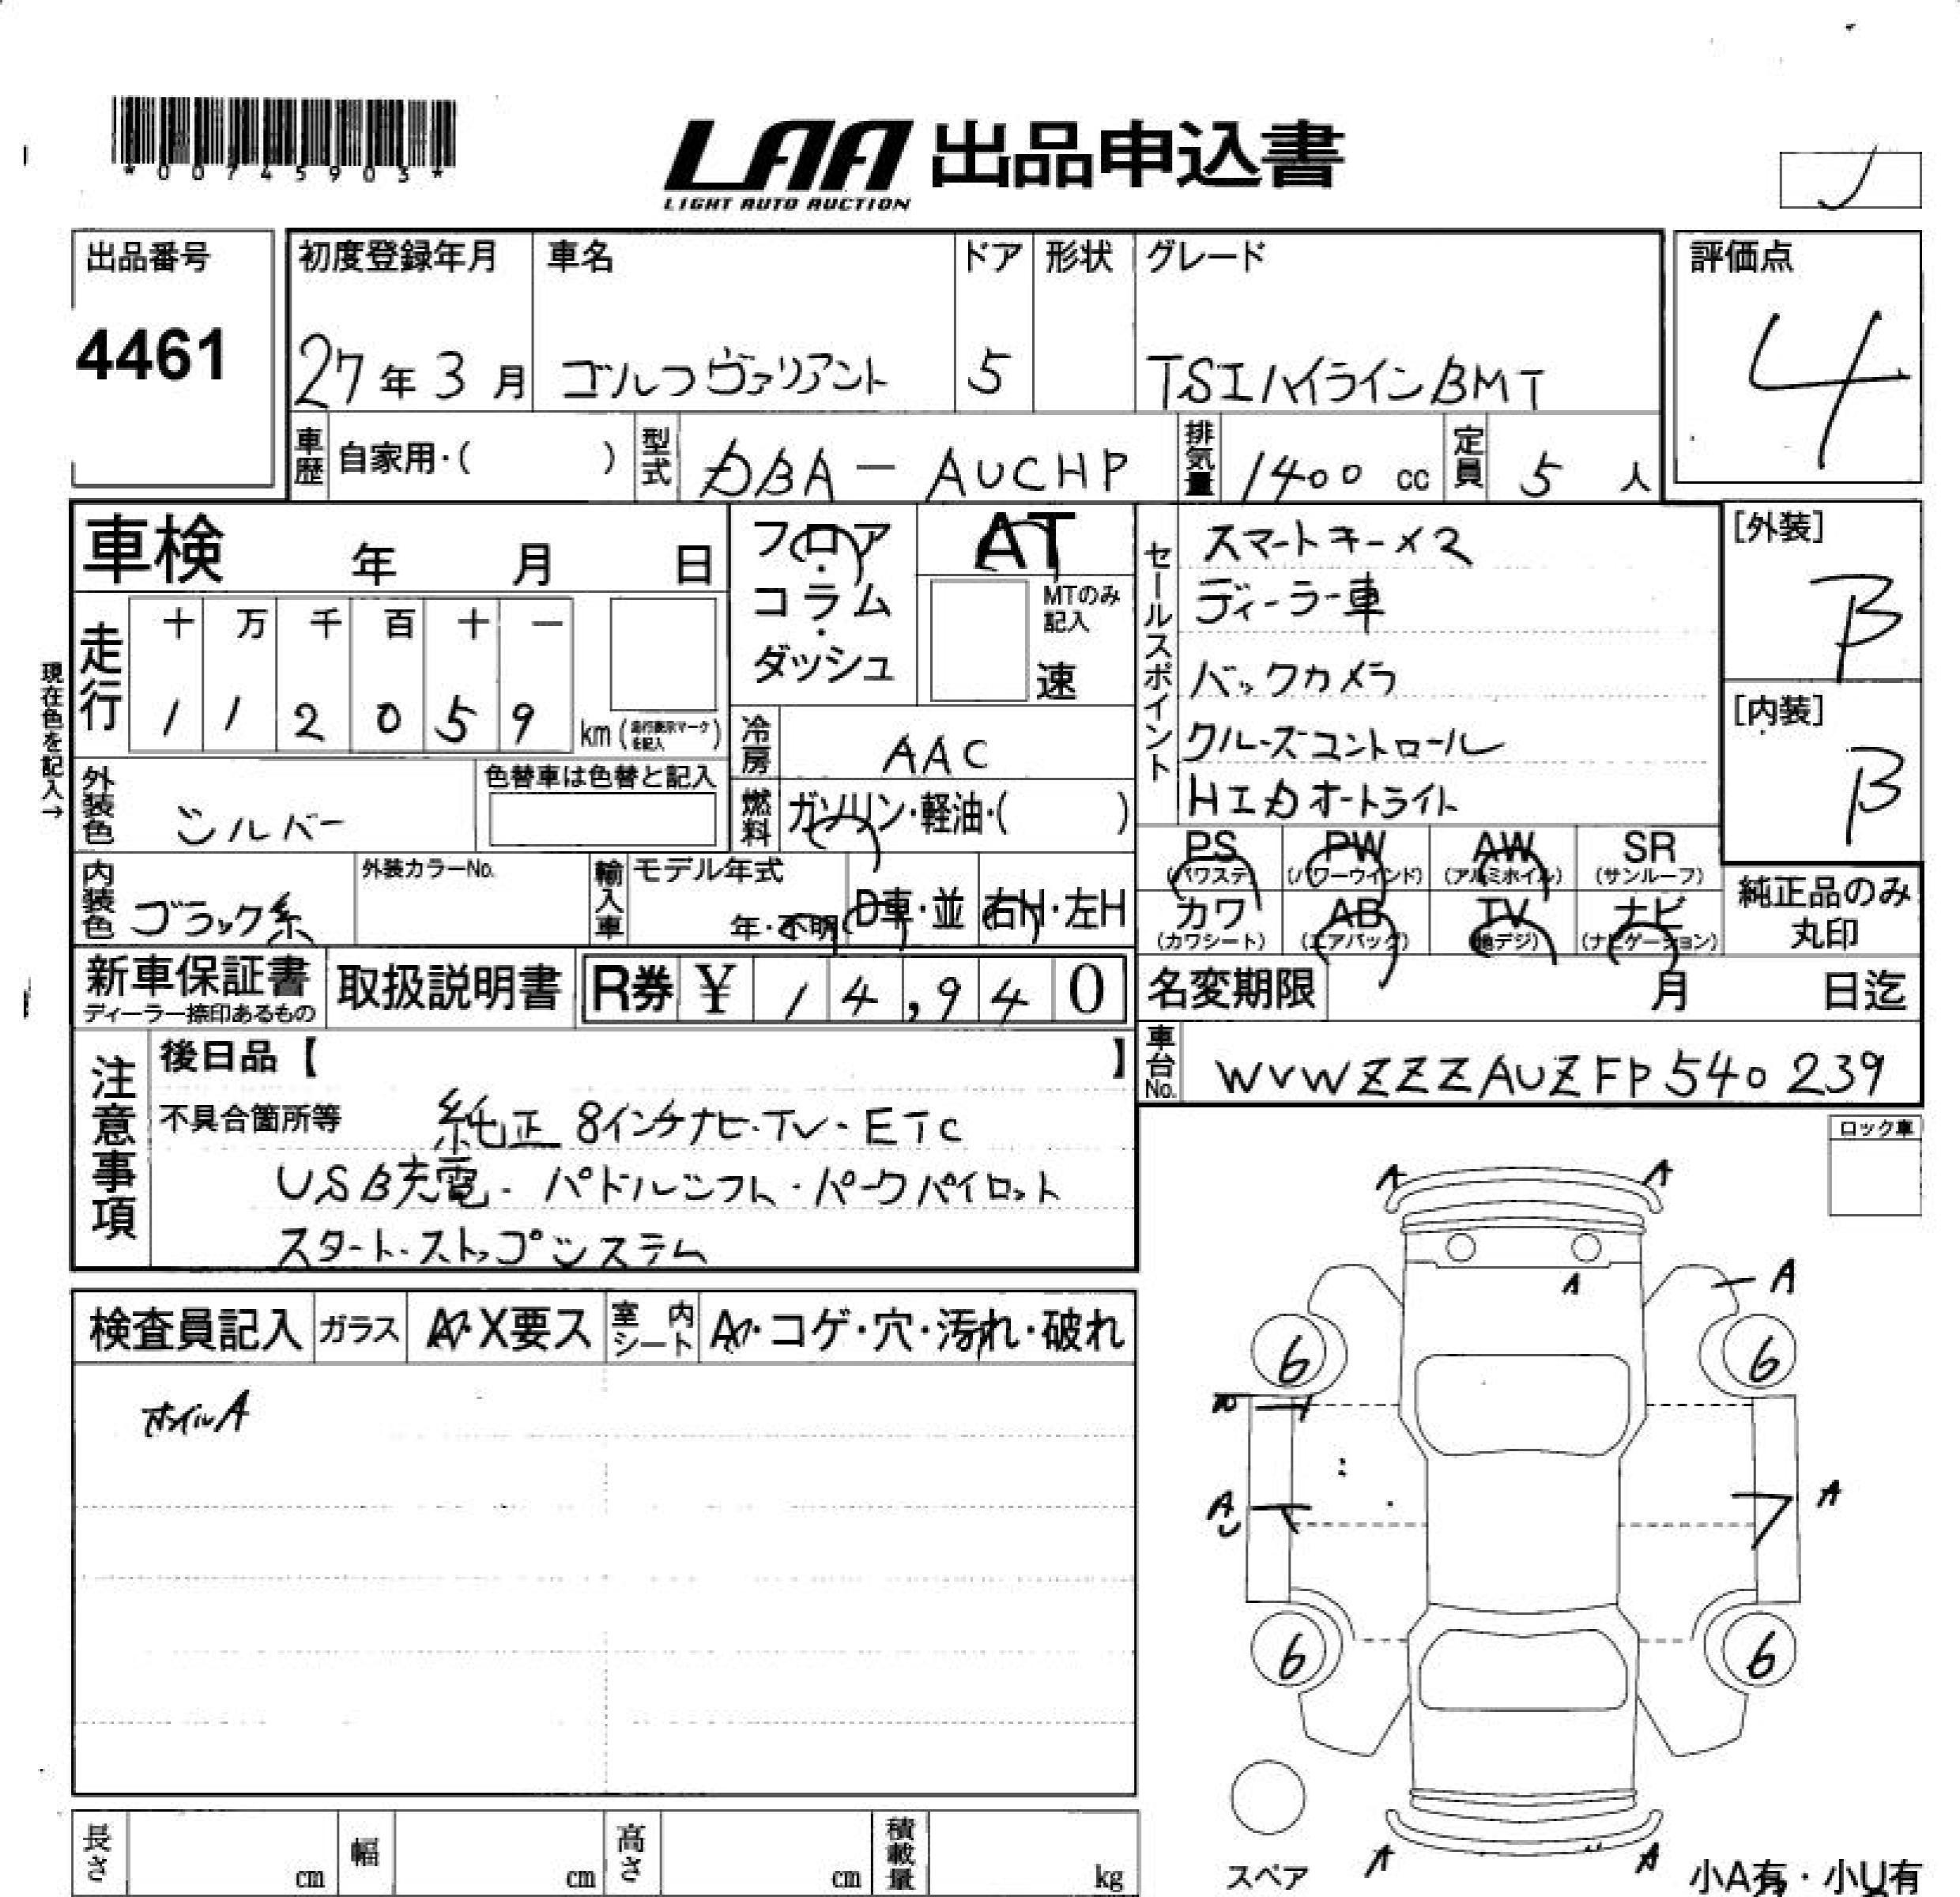 *00745903*
LAA 出品申込書
LIGHT AUTO AUCTION
出品番号
4461
初度登録年月
27年3月
車名
ゴルフヴァリアント
ドア
5
形状
グレード
TSIハイラインBMT
評価点
4
車歴 自家用・( )
型式 DBA-AUCHP
排気量 1400 cc
定員 5 人
車検 年 月 日
フロア・コラム・ダッシュ
AT
MTのみ記入
速
セールスポイント
スマートキー×2
ディーラー車
バックカメラ
クルーズコントロール
HIDオートライト
[外装]
B
[内装]
B
現在色を記入→
走行
十 万 千 百 十 一
1 1 2 0 5 9 km (走行表示マークを記入)
冷房 AAC
外装色 シルバー
色替車は色替と記入
燃料 ガソリン・軽油・( )
PS (パワステ)
PW (パワーウインド)
AW (アルミホイル)
SR (サンルーフ)
カワ (カワシート)
AB (エアバッグ)
TV (地デジ)
ナビ (ナビゲーション)
純正品のみ丸印
内装色 ブラック系
外装カラーNo.
輸入車
モデル年式
年・不明
D車・並
右H・左H
新車保証書
ディーラー捺印あるもの
取扱説明書
R券 ¥ 14,940
名変期限 月 日迄
車台No. WVWZZZAUZFP540239
注意事項
後日品【 】
不具合箇所等
純正 8インチナビ・TV・ETC
USB充電・パドルシフト・パークパイロット
スタート・ストップシステム
ロック車
検査員記入
ガラス A・X要ス
室内シート A・コゲ・穴・汚れ・破れ
ホイルA
A A
A A
6 6
A A
6 6
スペア
A A
小A有・小U有
長さ cm
幅 cm
高さ cm
積載量 kg